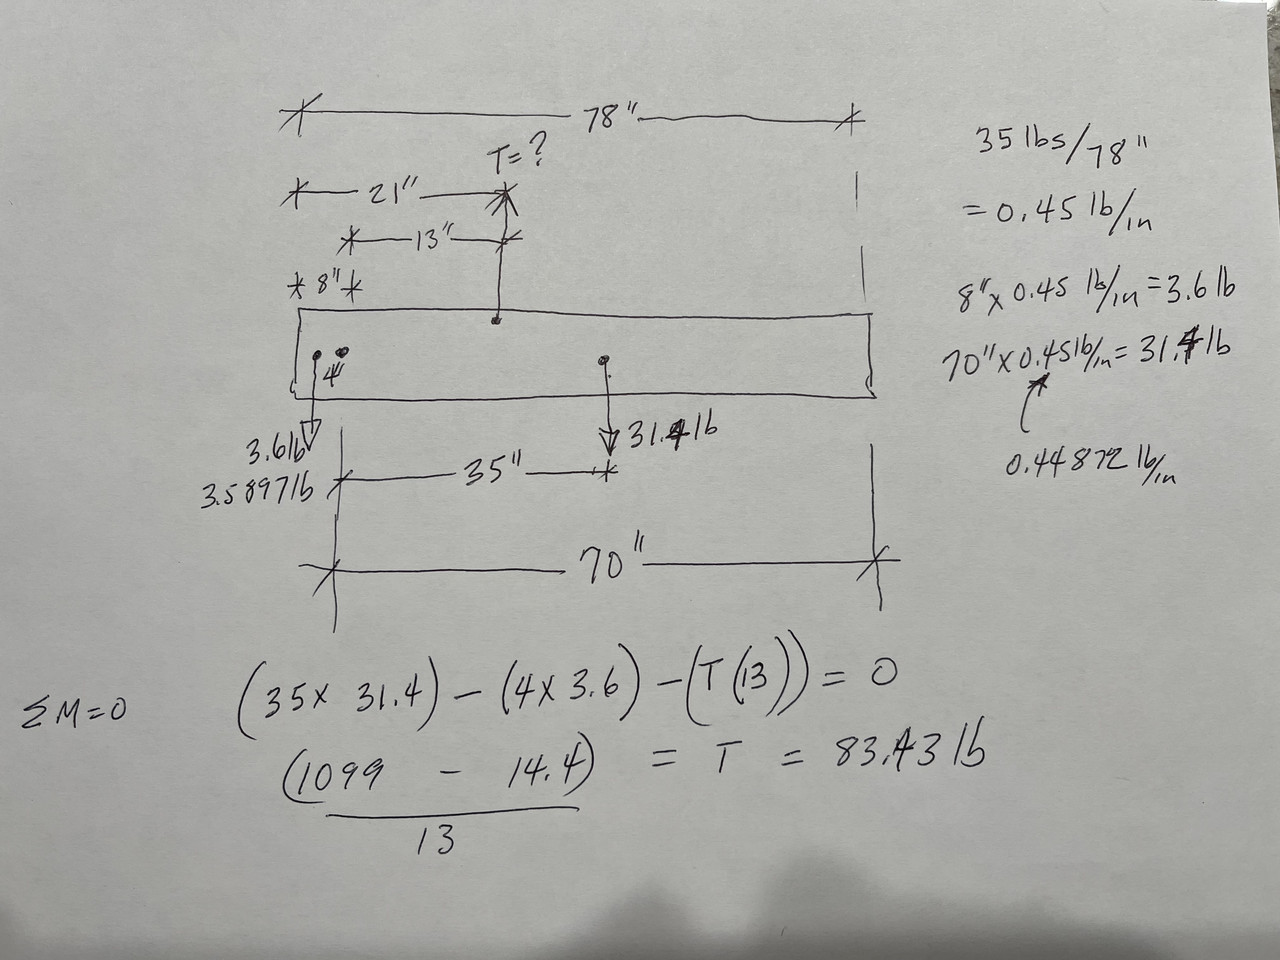 78"
T=?
21"
13"
8"
4"
3.6lb
3.5897lb
31.4lb
35"
70"
35 lbs/78"
= 0.45 lb/in
8" x 0.45 lb/in = 3.6 lb
70" x 0.45 lb/in = 31.4 lb
0.44872 lb/in
ΣM=0 (35 x 31.4) - (4 x 3.6) - (T(13)) = 0
(1099 - 14.4) = T = 83.43 lb
13